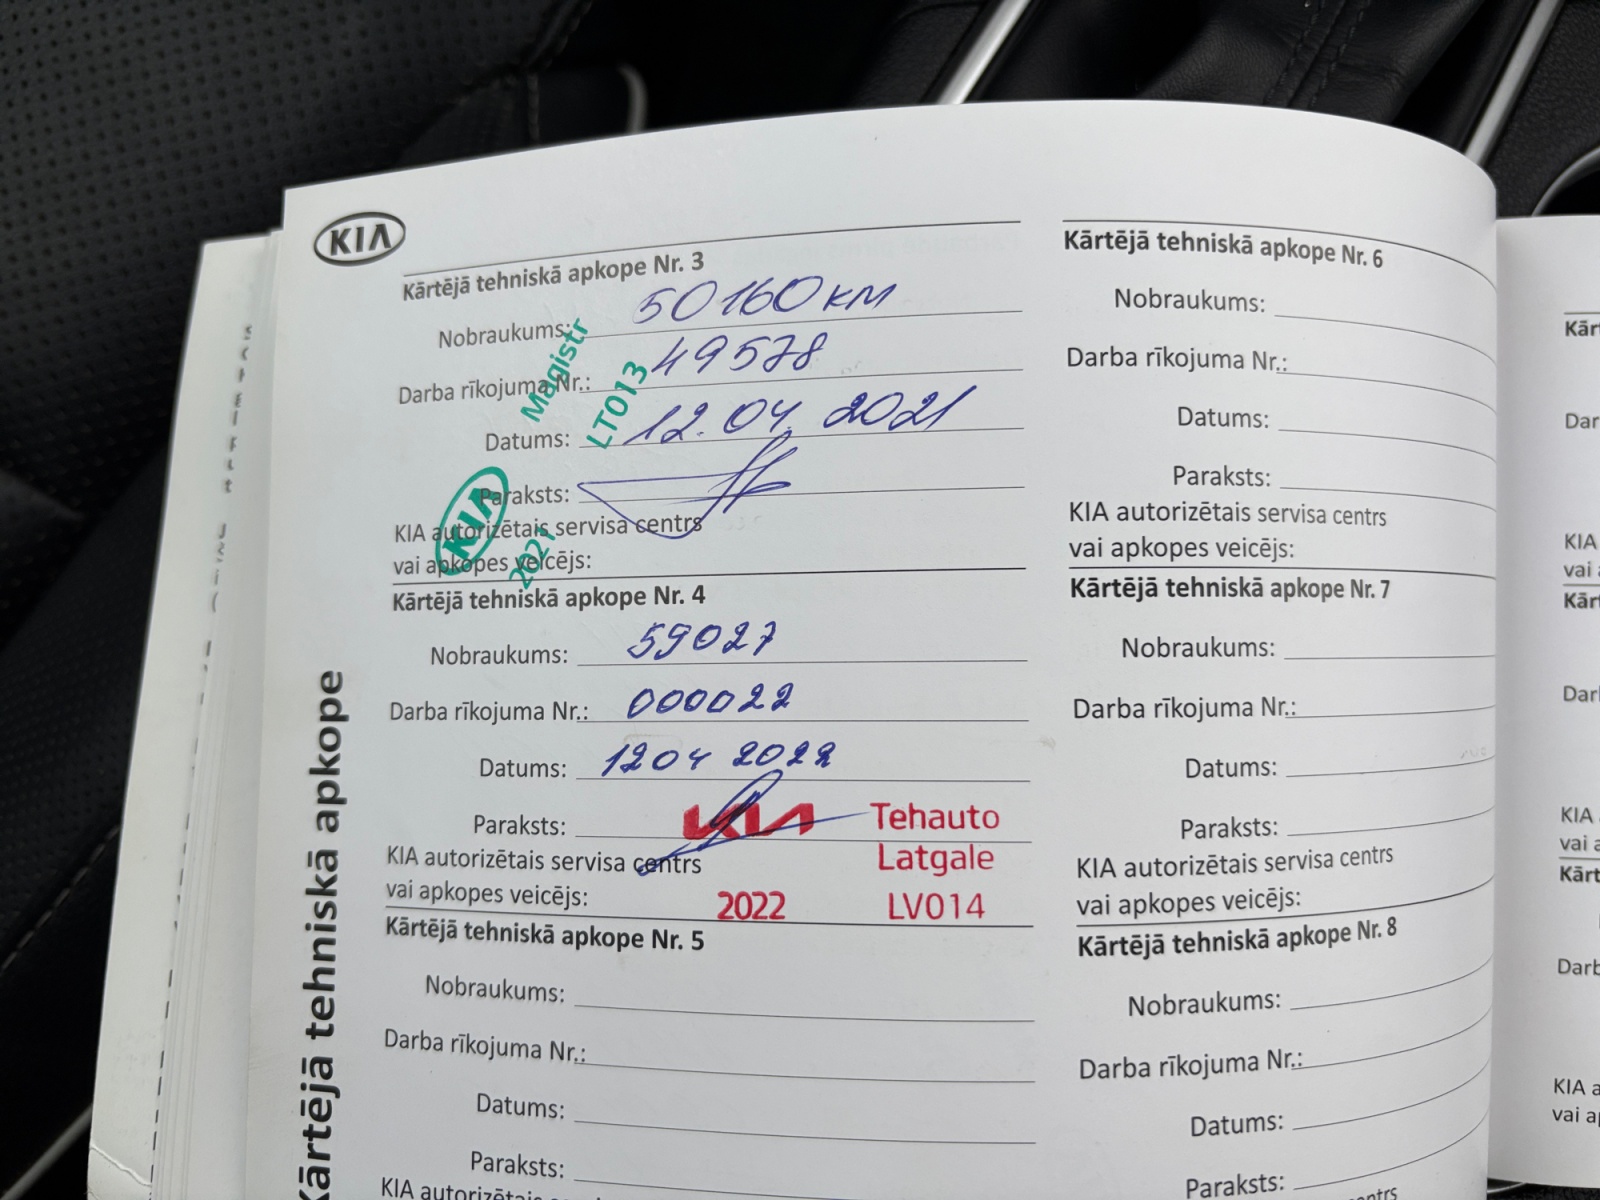 KIA
Kārtējā tehniskā apkope Nr. 3
Nobraukums: 50160 км
Darba rīkojuma Nr.: 49578
Datums: 12.04.2021
Paraksts:
KIA autorizētais servisa centrs
vai apkopes veicējs:
Magistr
LT013
KIA
2021
Kārtējā tehniskā apkope Nr. 4
Nobraukums: 59027
Darba rīkojuma Nr.: 000022
Datums: 12 04 2022
Paraksts:
KIA autorizētais servisa centrs
vai apkopes veicējs:
KIA Tehauto
Latgale
2022 LV014
Kārtējā tehniskā apkope Nr. 5
Nobraukums:
Darba rīkojuma Nr.:
Datums:
Paraksts:
KIA autorizētais servisa centrs
Kārtējā tehniskā apkope Nr. 6
Nobraukums:
Darba rīkojuma Nr.:
Datums:
Paraksts:
KIA autorizētais servisa centrs
vai apkopes veicējs:
Kārtējā tehniskā apkope Nr. 7
Nobraukums:
Darba rīkojuma Nr.:
Datums:
Paraksts:
KIA autorizētais servisa centrs
vai apkopes veicējs:
Kārtējā tehniskā apkope Nr. 8
Nobraukums:
Darba rīkojuma Nr.:
Datums:
Paraksts:
centrs
Kārtējā tehniskā apkope
KIA
vai
KIA
vai
KIA
vai